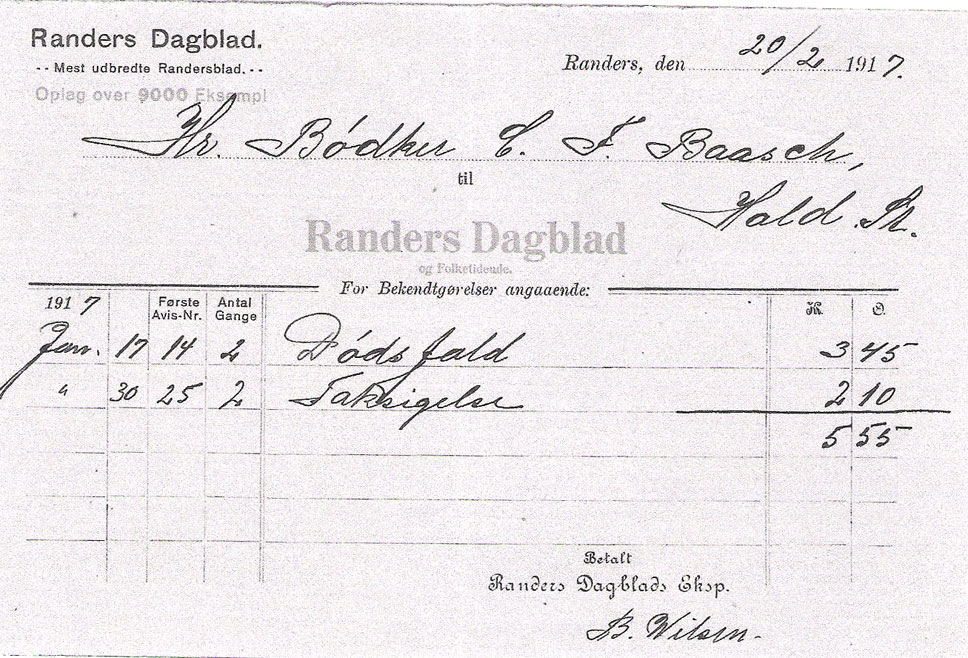 Randers Dagblad.
-- Mest udbredte Randersblad. --
Oplag over 9000 Eksempl
Randers, den 20/2 1917.
Hr. Bødker C. F. Baasch,
til
Hald St.
Randers Dagblad
og Folketidende.
For Bekendtgørelser angaaende:
1917 Første Avis-Nr. Antal Gange Kr. Ø.
Jan. 17 14 2 Dødsfald 3 45
" 30 25 2 Taksigelse 2 10
5 55
Betalt
Randers Dagblads Eksp.
B. Wilsen.